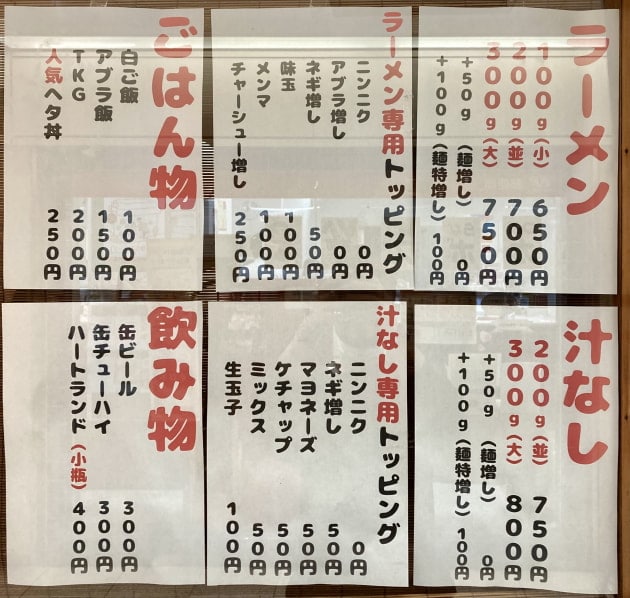 ラーメン
100g(小) 650円
200g(並) 700円
300g(大) 750円
+50g(麺増し) 0円
+100g(麺特増し) 100円
ラーメン専用トッピング
ニンニク 0円
アブラ増し 0円
ネギ増し 50円
味玉 100円
メンマ 100円
チャーシュー増し 250円
ごはん物
白ご飯 100円
アブラ飯 150円
TKG 200円
人気ヘタ丼 250円
汁なし
200g(並) 750円
300g(大) 800円
+50g(麺増し) 0円
+100g(麺特増し) 100円
汁なし専用トッピング
ニンニク 0円
ネギ増し 50円
マヨネーズ 50円
ケチャップ 50円
ミックス 50円
生玉子 100円
飲み物
缶ビール 300円
缶チューハイ 300円
ハートランド(小瓶) 400円